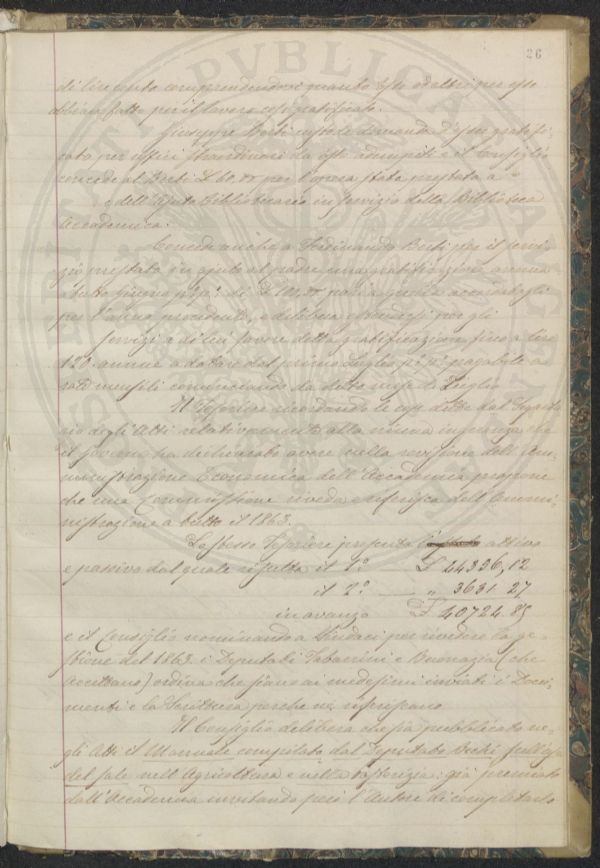 26
di lire cento comprendendovi quanto esso ed altri per esso
abbian fatto per il lavoro così gratificato.
Giuseppe Berti inoltre domanda d'esser gratifi-
cato per uffici straordinari da esso adempiti e il Consiglio
concede al Berti £ 60,00 per l'opera stata prestata a
e dell'Aiuto Bibliotecario in servizio della Biblioteca
Accademica.
Concede anche a Ferdinando Berti per il servi-
zio prestato in aiuto al padre una gratificazione annua
a tutto Giugno p.° p.° di £ 100,00 pari a quella accordatagli
per l'anno precedente, e delibera per gli
servizi a di lui favore detta gratificazione fino a lire
120. annue a datare dal primo Luglio p.° p.° pagabile a
rate mensili cominciando da detto mese di Luglio
Il Tesoriere ricordando le cose dette dal Segreta-
rio degli Atti relativamente alla nessuna ingerenza che
il governo ha dichiarato avere nella revisione dell'Am-
ministrazione Economica dell'Accademia propone
che una Commissione riveda e riferisca dell'Ammi-
nistrazione a tutto il 1863.
Lo stesso Tesoriere presenta attivo
e passivo dal quale risulta il 1.° £ 44356,12
il 2.° " 3631 27
in avanzo £ 40724.85
e il Consiglio nominando a Sindaci per rivedere la ge-
stione del 1863. i Deputati Tabarrini e Buonazia (che
accettano) ordina che siano ai medesimi inviati i Docu-
menti e la Scrittura perchè ne riferiscano
Il Consiglio delibera che sia pubblicato ne-
gli Atti il Manuale compilato dal Deputato Bechi sull'uso
del sale nell'Agricoltura e nella pastorizia: già premiato
dall'Accademia invitando però l'Autore di completarlo